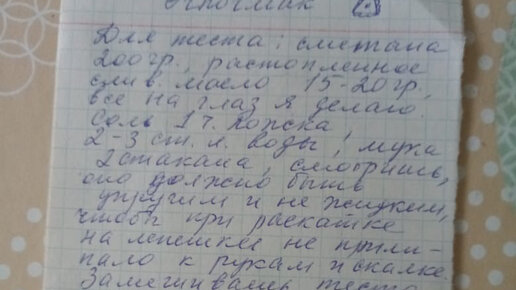 Для теста: сметана
200 гр., растопленное
слив. масло 15-20 гр,
все на глаз я делаю.
Соль 1 ч. ложка
2-3 ст. л. воды, мука
2 стакана, смотришь,
оно должно быть
упругим и не жидким,
чтобы при раскатке
на лепешки не прили-
пало к рукам и скалке
Замешиваешь тесто